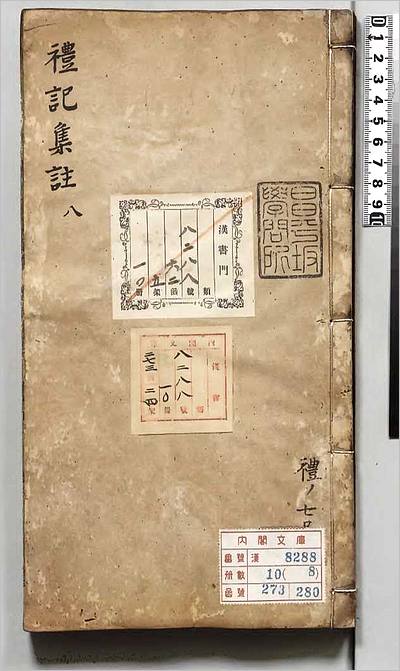 禮記集註 八
昌平坂
學問所
漢書門
八二八八
類
號
六二
函
五
架
一〇
冊
內閣文庫
漢書
八二八八
號
一〇
冊
二七三
二四
架
禮ノ七
內閣文庫
番號 漢 8288
冊數 10(8)
函號 273 280
0 1 2 3 4 5 6 7 8 9 10